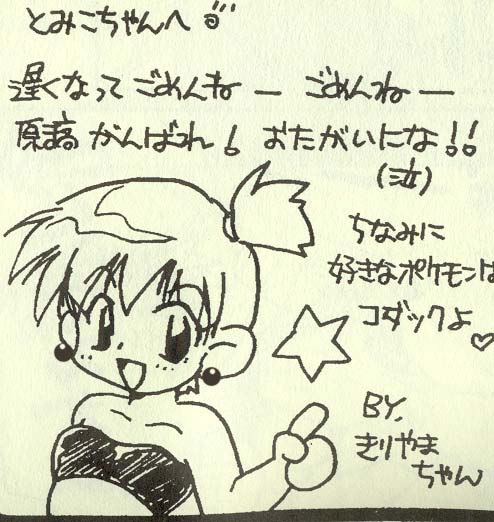 とみこちゃんへ
遅くなってごめんねー ごめんねー
原稿がんばれ! おたがいにな!!
(泣)
ちなみに
好きなポケモンは
コダックよ♡
BY.
きりやま
ちゃん